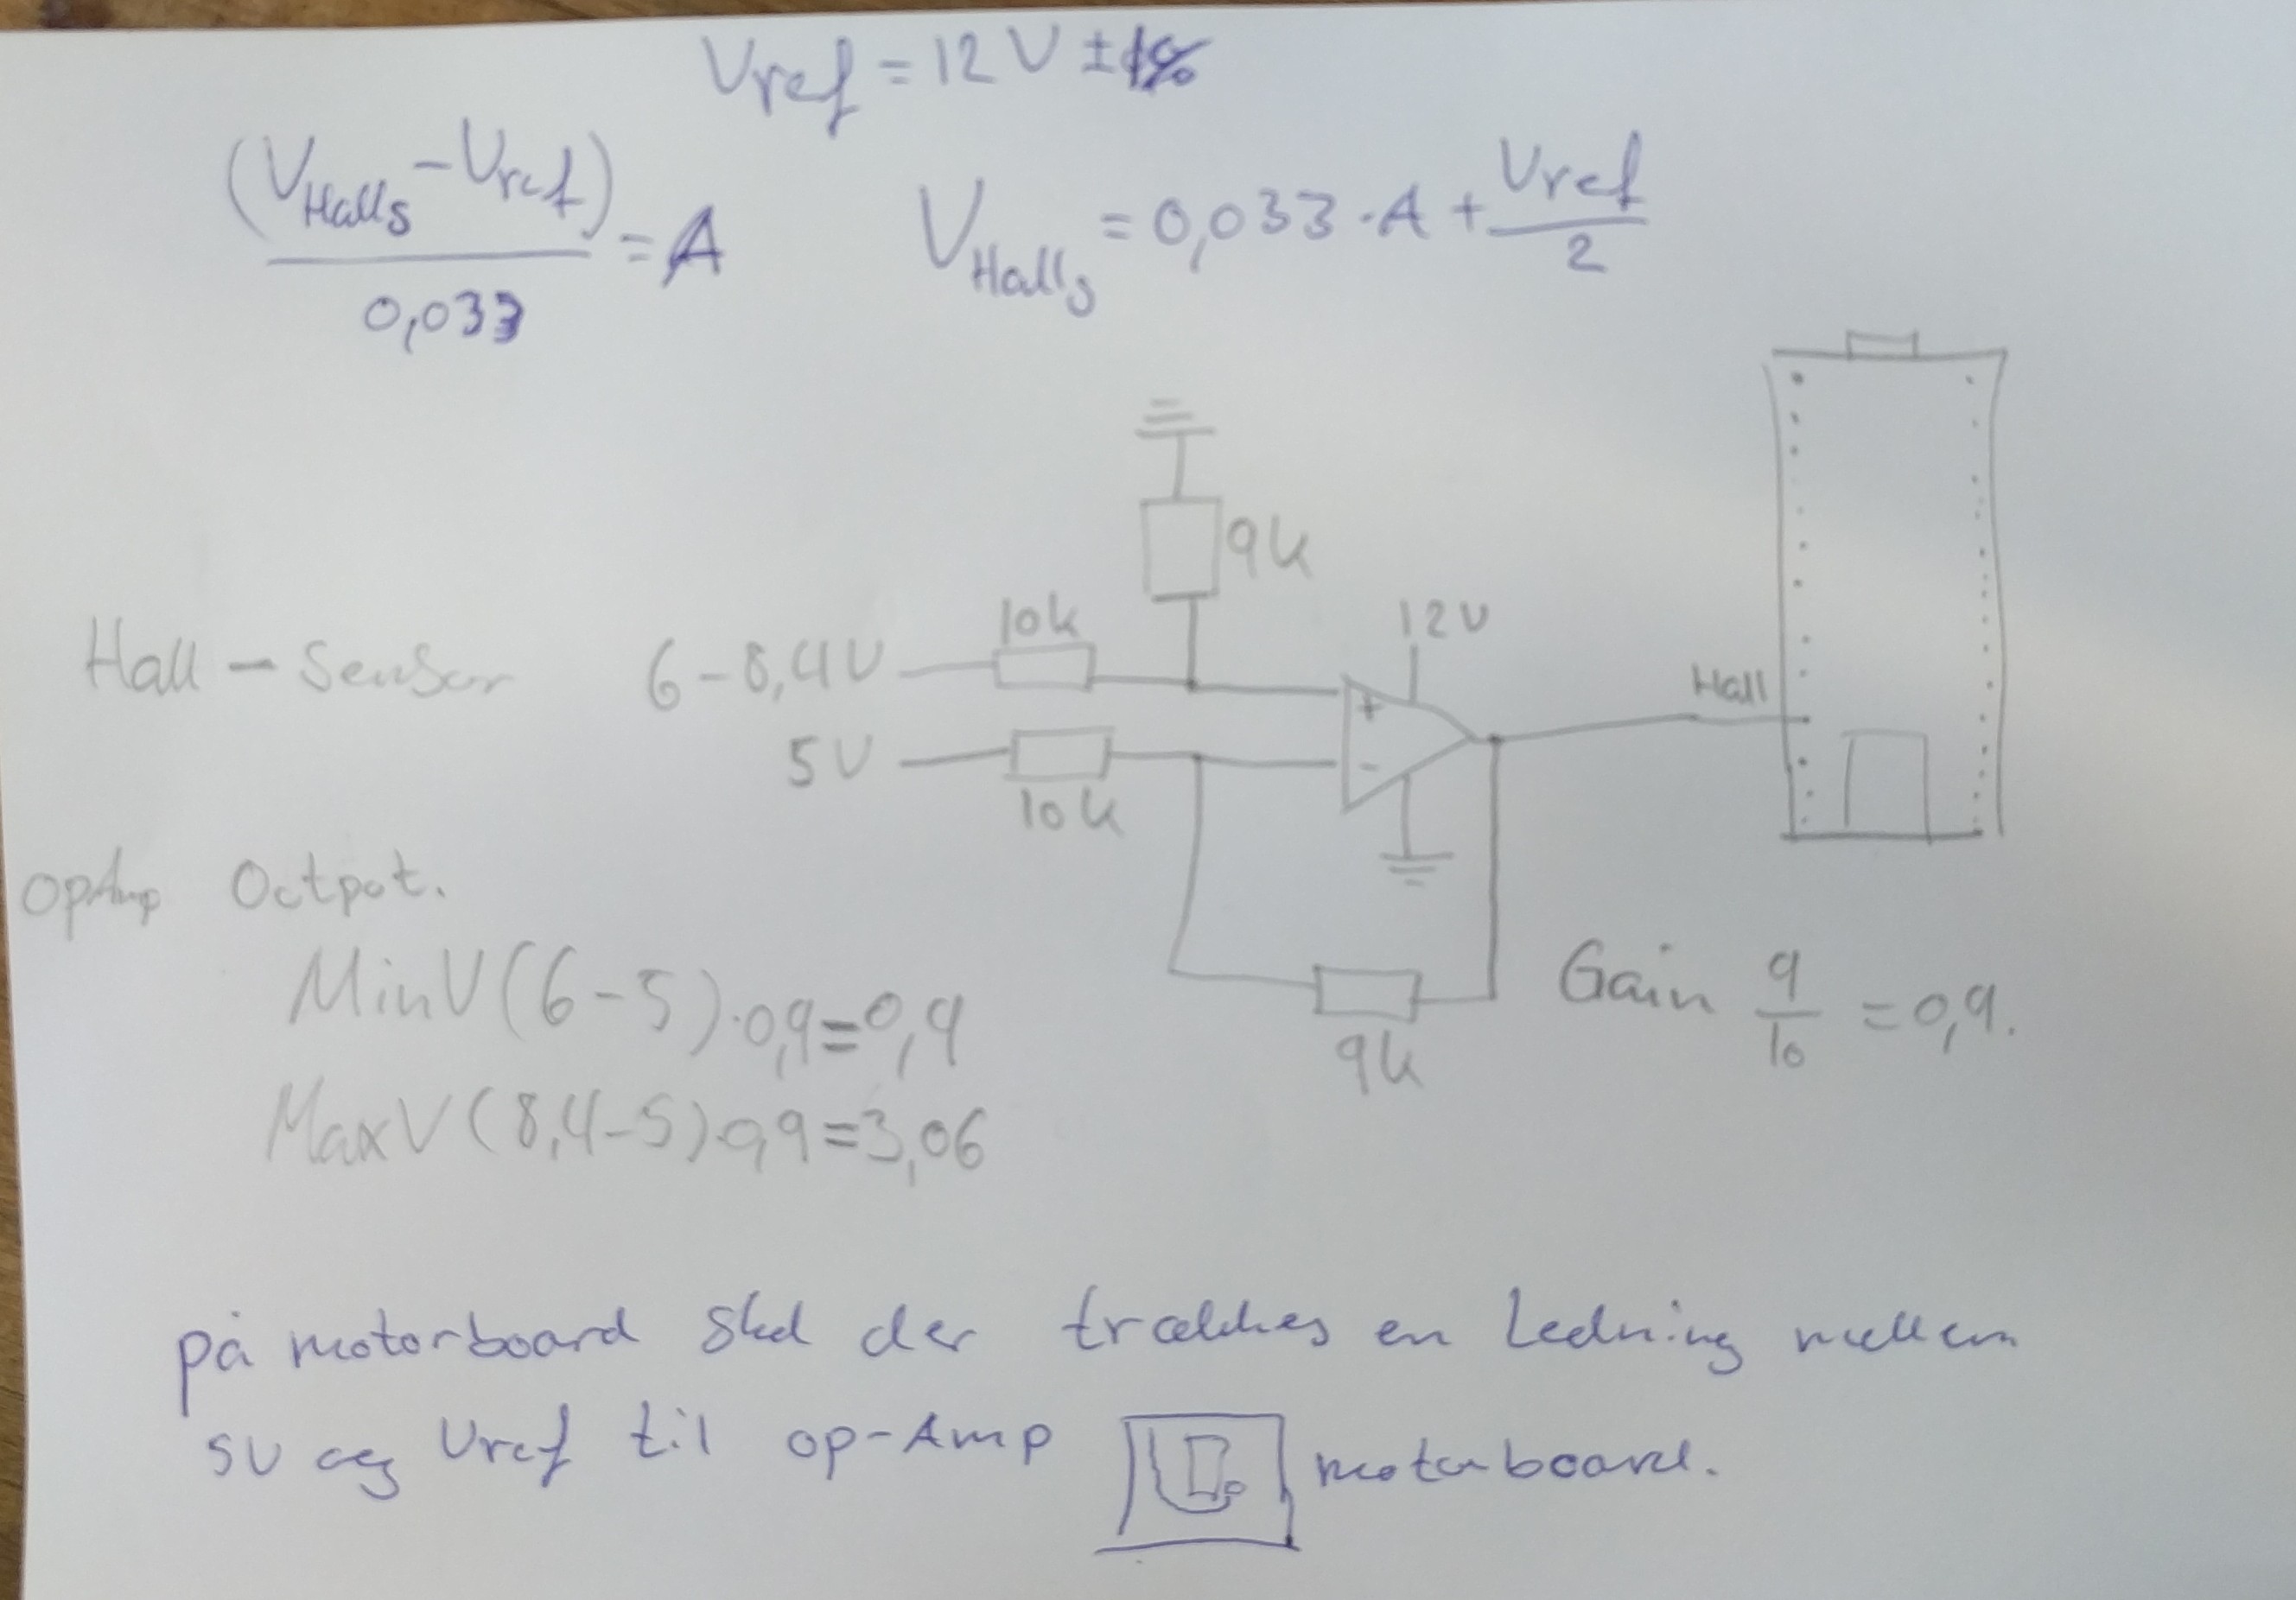 Vref = 12 V ±
(VHalls - Vref) / 0,033 = A
VHalls = 0,033 · A + Vref / 2
9k
10k
12V
Hall - Sensor 6 - 8,4V
Hall
5V
10k
OpAmp Octpot.
MinV (6-5)·0,9=0,9
Gain 9/10 = 0,9.
9k
MaxV (8,4-5)·0,9=3,06
på motorboard skal der trækkes en Ledning mellem
5V og Vref til op-Amp motorboard.